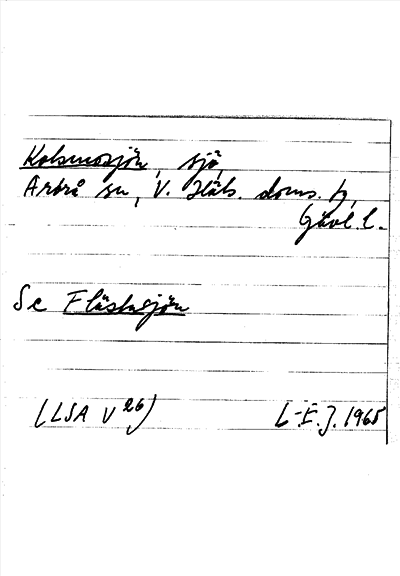 Kolsmosjön, sjö,
Arbrå sn, V. Häls. doms. h,
Gävl. l.
Se Fläsksjön
(LSA V 26)
L-E. J. 1965